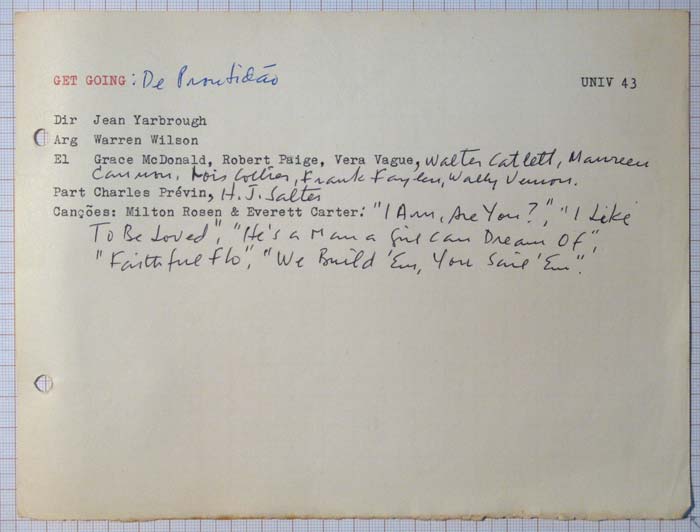 GET GOING: De Prontidão UNIV 43
Dir Jean Yarbrough
Arg Warren Wilson
El Grace McDonald, Robert Paige, Vera Vague, Walter Catlett, Maureen
Cannon, Lois Collier, Frank Faylen, Wally Vernon.
Part Charles Prévin, H. J. Salter
Canções: Milton Rosen & Everett Carter: "I Am, Are You?", "I Like
To Be Loved", "He's a Man a Girl Can Dream Of",
"Faithful Flo", "We Build 'Em, You Sail 'Em".